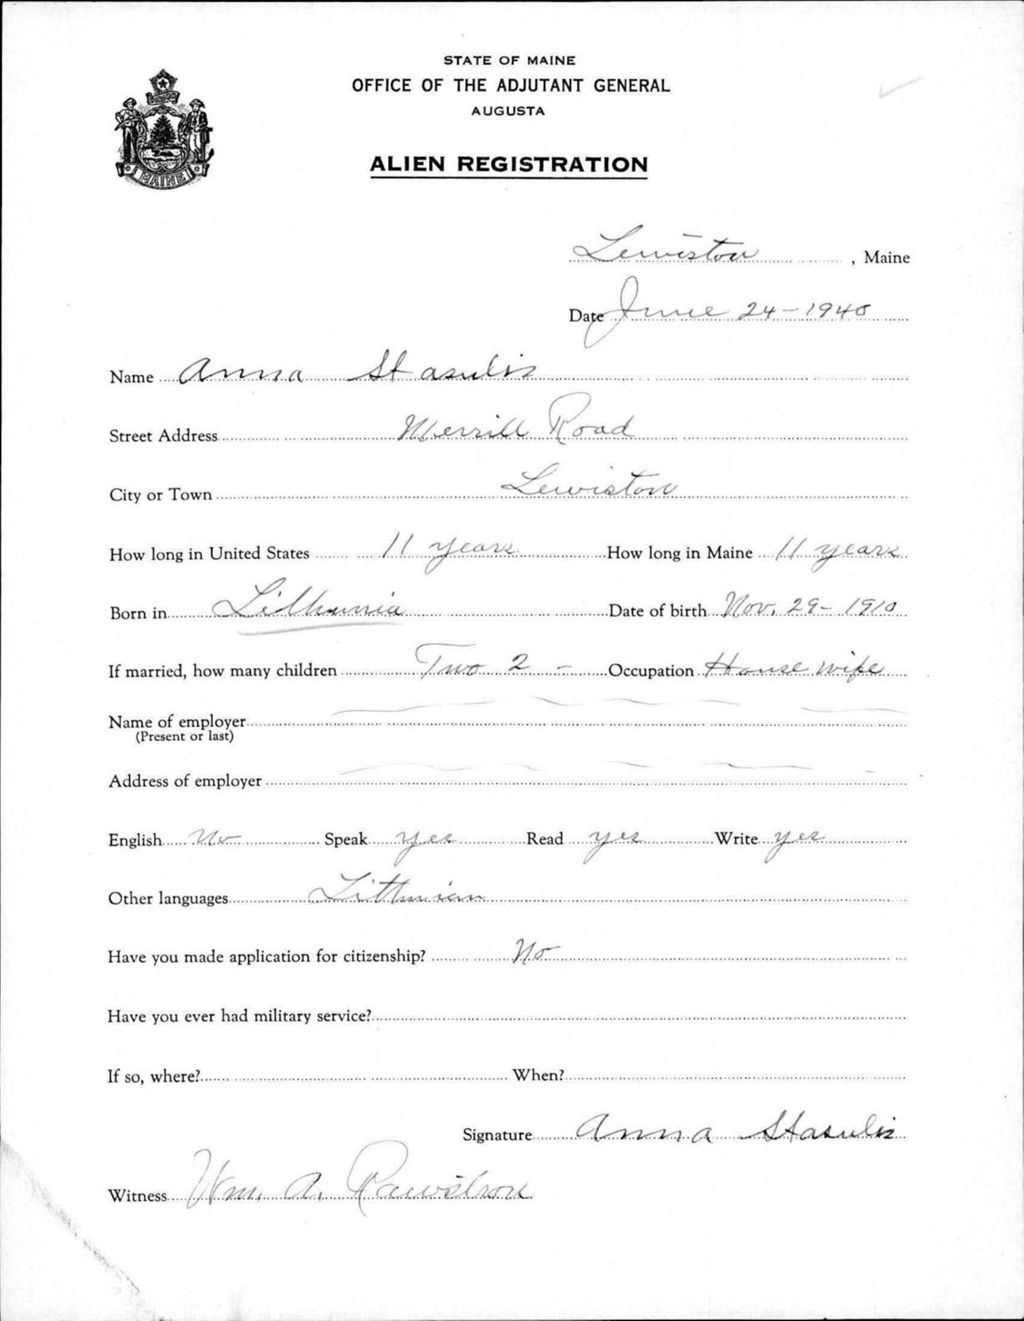 STATE OF MAINE
OFFICE OF THE ADJUTANT GENERAL
AUGUSTA
MAINE
ALIEN REGISTRATION
Lewiston, Maine
Date June 24-1940
Name Anna Stasulis
Street Address Merrill Road
City or Town Lewiston
How long in United States 11 years How long in Maine 11 years
Born in Lithunia Date of birth Nov. 29-1910
If married, how many children Two 2 - Occupation House wife
Name of employer
(Present or last)
Address of employer
English No Speak yes Read yes Write yes
Other languages Lithunian
Have you made application for citizenship? No
Have you ever had military service?
If so, where? When?
Signature Anna Stasulis
Witness Wm. A. Rawstron